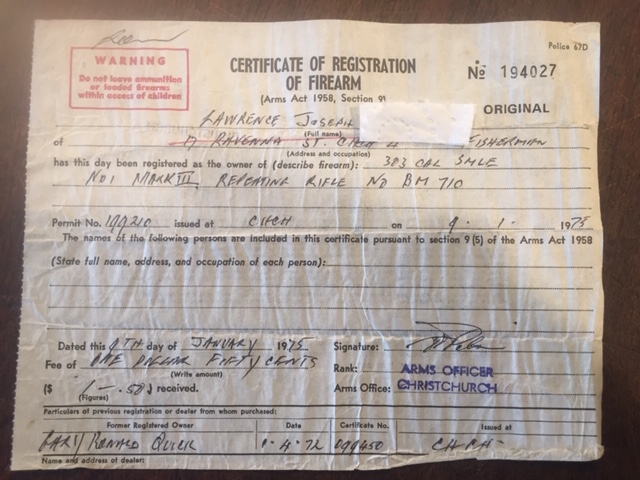 Police 67D
WARNING
Do not leave ammunition
or loaded firearms
within access of children
CERTIFICATE OF REGISTRATION
OF FIREARM
(Arms Act 1958, Section 9)
No 194027
ORIGINAL
LAWRENCE JOSEPH
(Full name)
of 17 RAVENNA ST. CHCH 4 FISHERMAN
(Address and occupation)
has this day been registered as the owner of (describe firearm): 303 CAL SMLE
NO1 MARK III REPEATING RIFLE NO BM 710
Permit No. 199210 issued at CHCH on 9 . 1 . 1975
The names of the following persons are included in this certificate pursuant to section 9 (5) of the Arms Act 1958
(State full name, address, and occupation of each person):
Dated this 9TH day of JANUARY 1975
Signature:
Fee of ONE DOLLAR FIFTY CENTS
(Write amount)
Rank: ARMS OFFICER
($ 1-.50) received.
(Figures)
Arms Office: CHRISTCHURCH
Particulars of previous registration or dealer from whom purchased:
Former Registered Owner Date Certificate No. Issued at
GARY RONALD QUICK .4.72 099450 CHCH
Name and address of dealer: